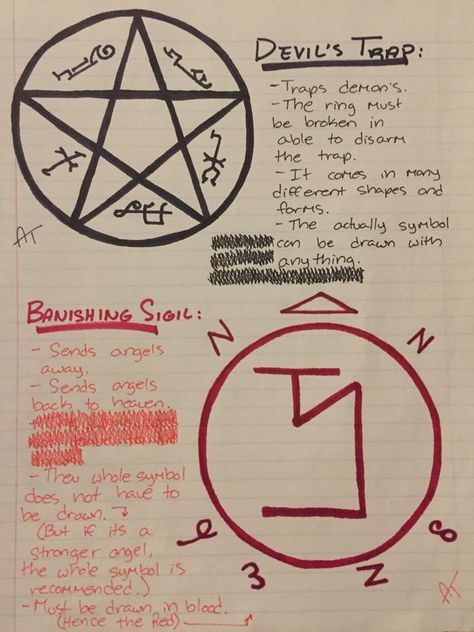 DEVIL'S TRAP:
- Traps demon's.
- The ring must
be broken in
able to disarm
the trap.
- It comes in many
different shapes and
forms.
- The actually symbol
can be drawn with
anything.
AT
BANISHING SIGIL:
- Sends angels
away.
- Sends angels
back to heaven.
- Theu whole symbol
does not have to
be drawn.
(But if its a
stronger angel,
the whole symbol is
recommended.)
- Must be drawn in blood.
(Hence the Red)
N
N
e
3
Z
8
AT